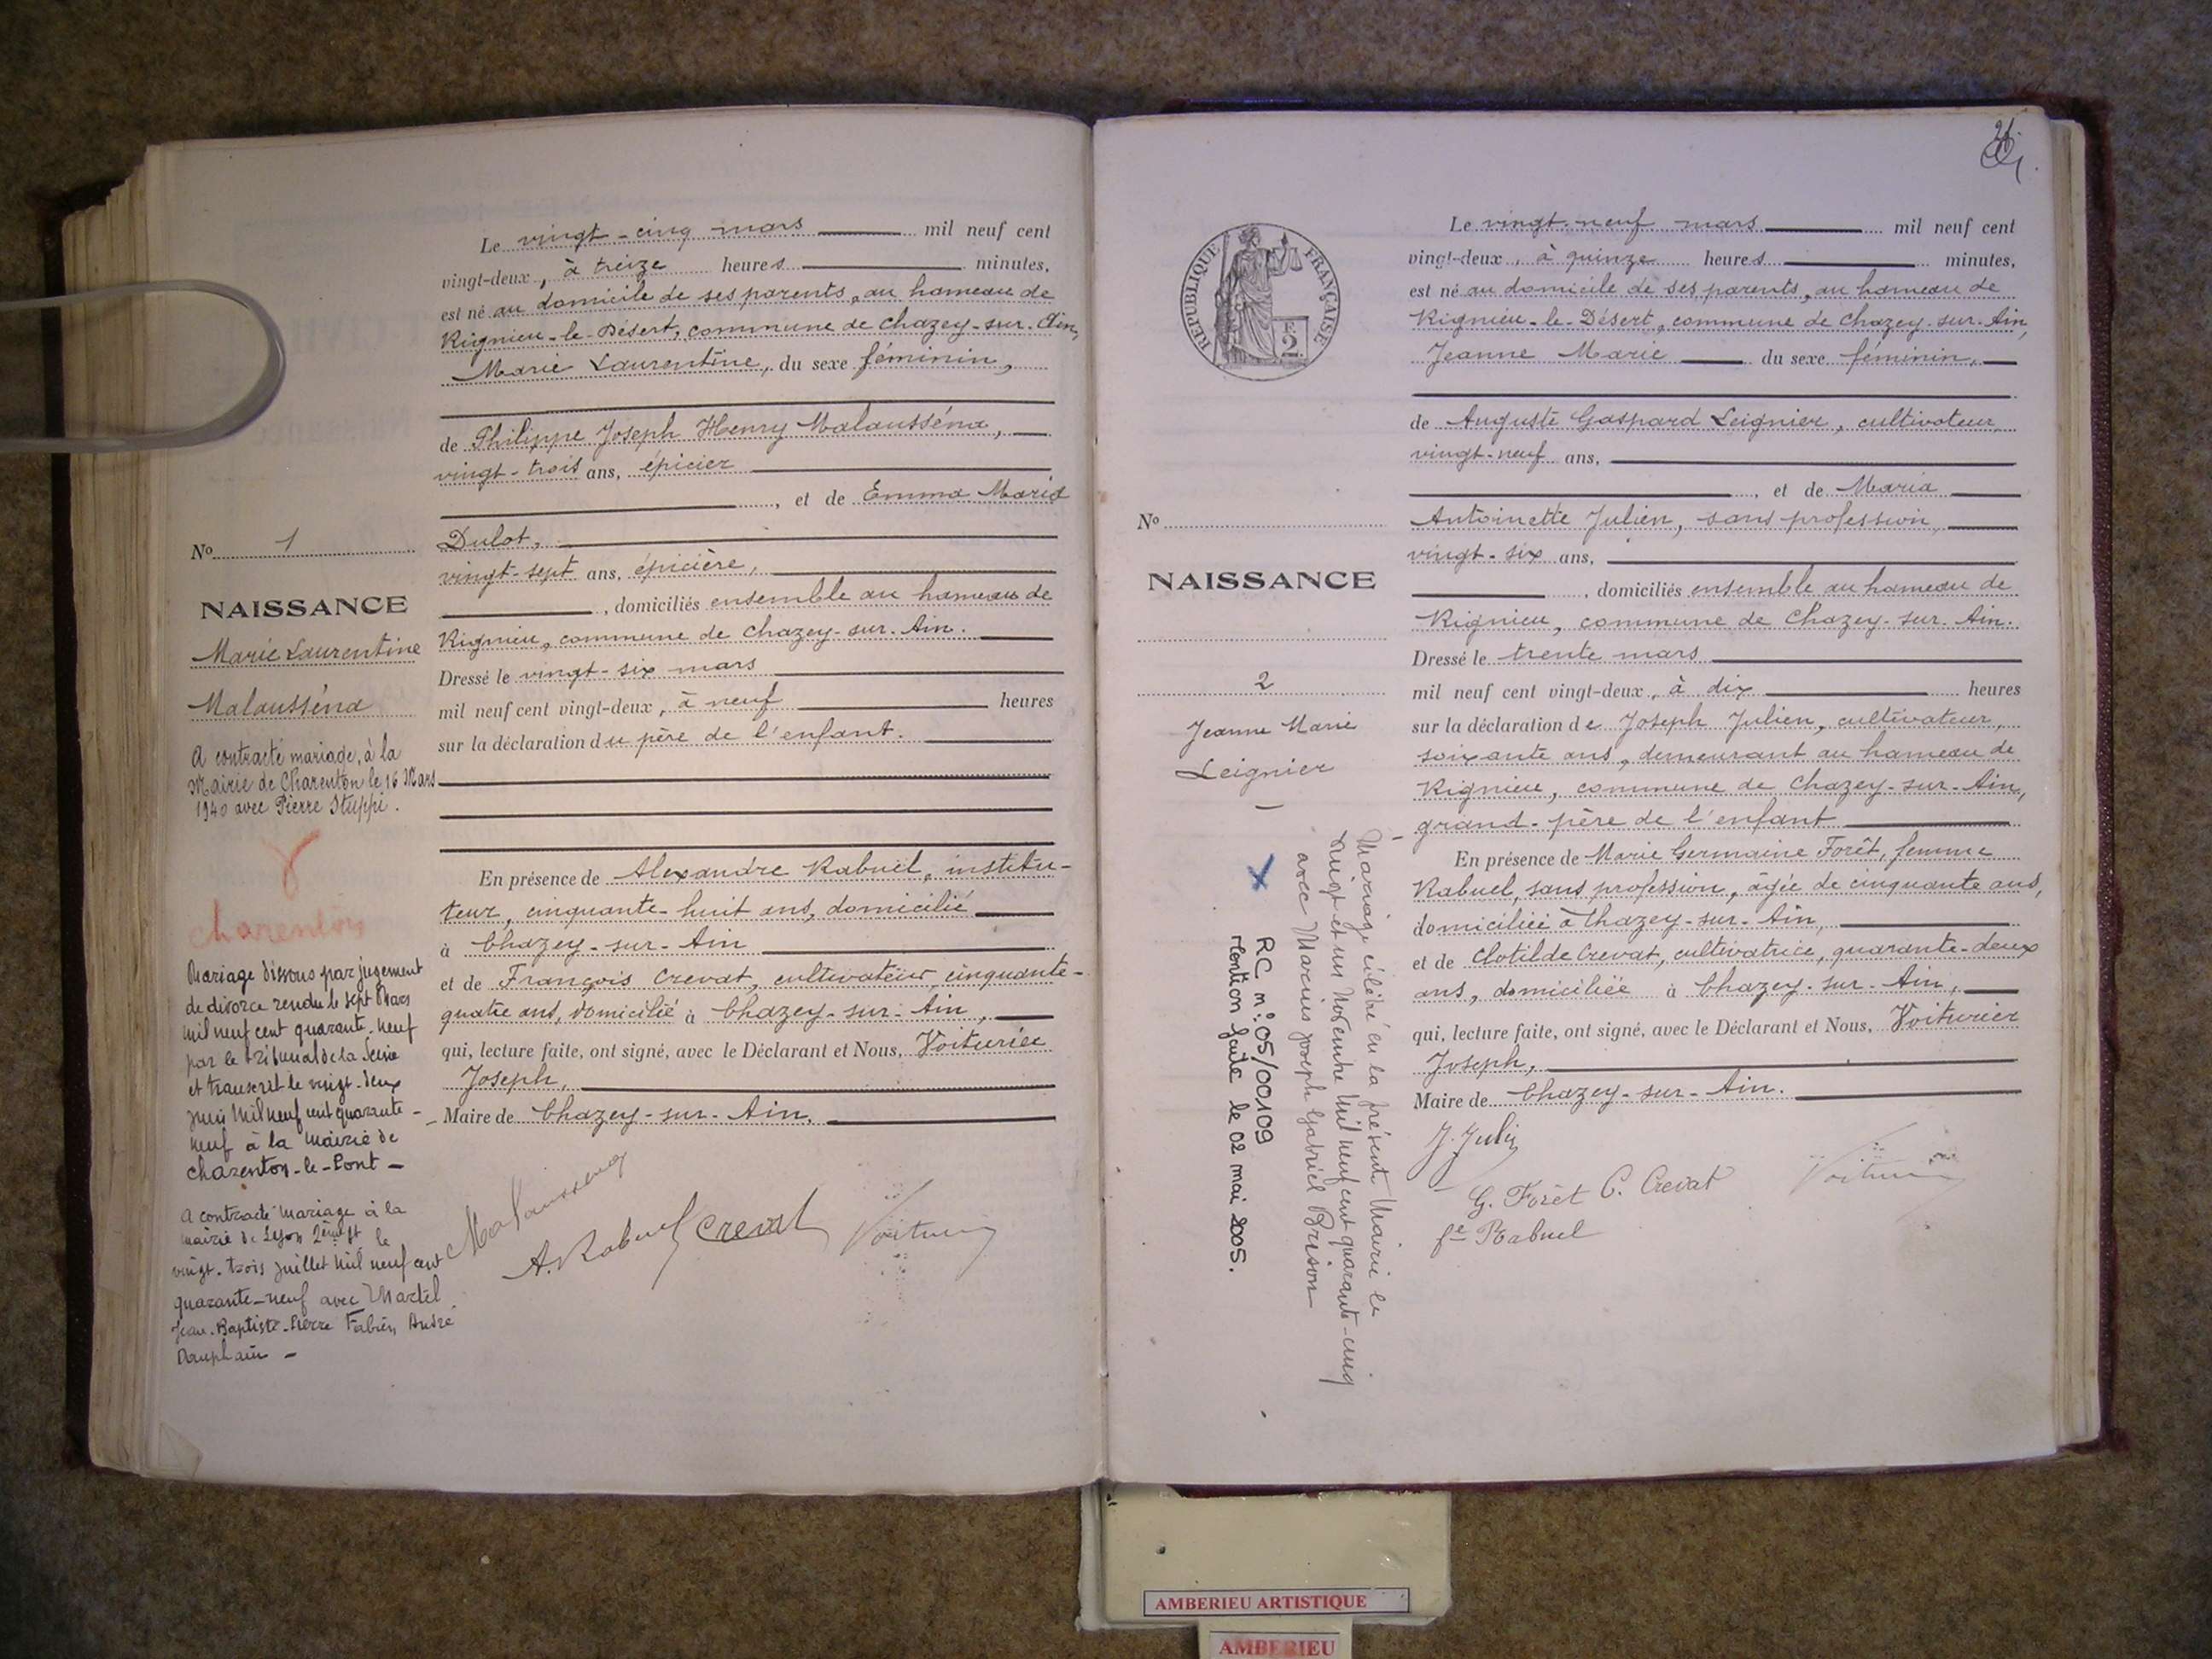 Le vingt-cinq mars mil neuf cent
vingt-deux, à treize heures minutes,
est né au domicile de ses parents, au hameau de
Rignieu-le-Désert, commune de Chazey-sur-Ain,
Marie Laurentine, du sexe féminin,
de Philippe Joseph Henry Malausséna,
vingt-trois ans, épicier
, et de Emma Maria
Dulot,
vingt-sept ans, épicière,
, domiciliés ensemble au hameau de
Rignieu, commune de Chazey-sur-Ain.
Dressé le vingt-six mars
mil neuf cent vingt-deux, à neuf heures
sur la déclaration du père de l'enfant.
En présence de Alexandre Rabuel, institu-
teur, cinquante-huit ans, domicilié
à Chazey-sur-Ain
et de François Crevat, cultivateur cinquante-
quatre ans, domicilié à Chazey-sur-Ain,
qui, lecture faite, ont signé, avec le Déclarant et Nous, Voiturier
Joseph,
Maire de Chazey-sur-Ain.
Malausséna
A. Rabuel Crevat Voiturier
No 1
NAISSANCE
Marie Laurentine
Malausséna
A contracté mariage, à la
Mairie de Charenton le 16 Mars
1940 avec Pierre Stuppi.
Charenton
Mariage dissous par jugement
de divorce rendu le sept Mars
mil neuf cent quarante-neuf
par le tribunal de la Seine
et transcrit le vingt-deux
juin mil neuf cent quarante-
neuf à la mairie de
Charenton-le-Pont
A contracté mariage à la
mairie de Lyon 2ème le
vingt-trois juillet mil neuf cent
quarante-neuf avec Martel
Jean-Baptiste-Pierre Fabien André
Dauphain
REPUBLIQUE FRANÇAISE
E
2
No
NAISSANCE
2
Jeanne Marie
Leignier
Mariage célébré en la présente Mairie le
vingt-et-un Novembre mil neuf cent quarante-cinq
avec Marcius Joseph Gabriel Brison
RC n°: 05/00109
Mention faite le 02 mai 2005.
Le vingt-neuf mars mil neuf cent
vingt-deux, à quinze heures minutes,
est né au domicile de ses parents, au hameau de
Rignieu-le-Désert, commune de Chazey-sur-Ain,
Jeanne Marie du sexe féminin,
de Auguste Gaspard Leignier, cultivateur,
vingt-neuf ans,
, et de Maria
Antoinette Julien, sans profession,
vingt-six ans,
, domiciliés ensemble au hameau de
Rignieu, commune de Chazey-sur-Ain.
Dressé le trente mars
mil neuf cent vingt-deux, à dix heures
sur la déclaration de Joseph Julien, cultivateur,
soixante ans, demeurant au hameau de
Rignieu, commune de Chazey-sur-Ain,
grand-père de l'enfant
En présence de Marie Germaine Forêt, femme
Rabuel, sans profession, âgée de cinquante ans,
domiciliée à Chazey-sur-Ain,
et de Clotilde Crevat, cultivatrice, quarante-deux
ans, domiciliée à Chazey-sur-Ain,
qui, lecture faite, ont signé, avec le Déclarant et Nous, Voiturier
Joseph,
Maire de Chazey-sur-Ain.
J. Julien
G. Forêt C. Crevat Voiturier
fe Rabuel
AMBERIEU ARTISTIQUE
AMBERIEU